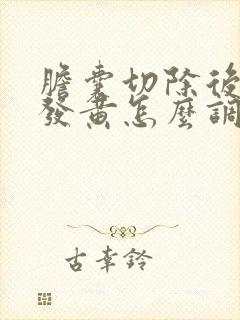 膽囊切除後
發黃怎麼調
古幸鈴